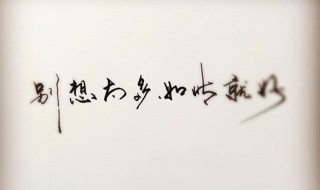 别想太多.如此就好